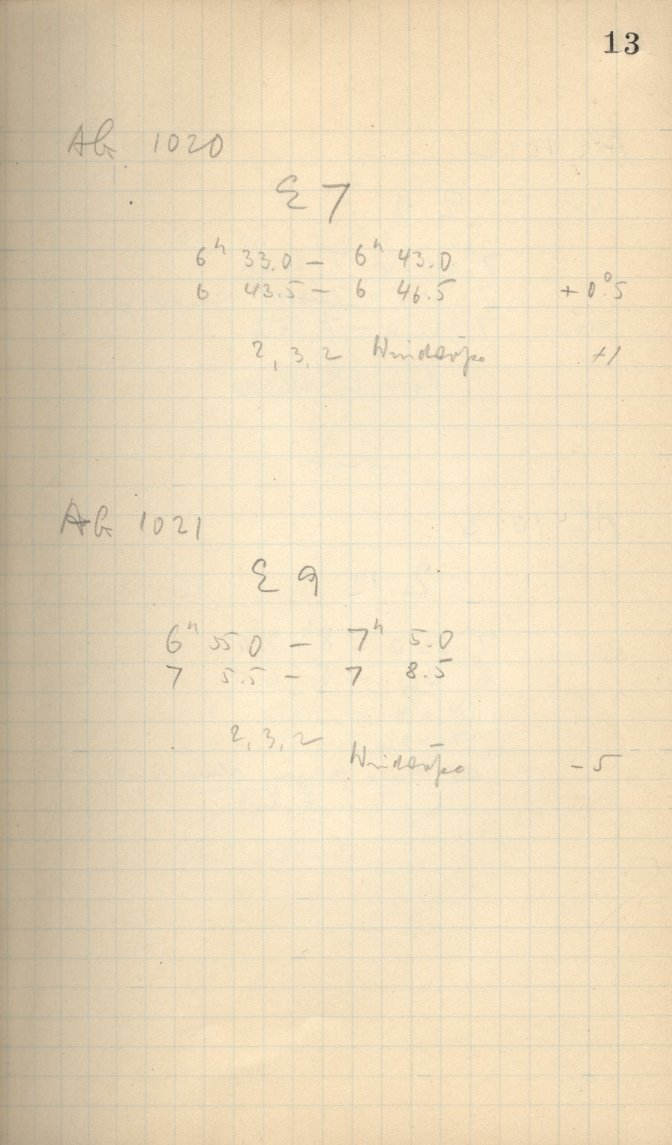 13
AG 1020
E 7
6h 33.0 – 6h 43.0
6 43.5 – 6 46.5 +0°5
2, 3, 2 Windstöße +1
AG 1021
E 9
6h 55 0 – 7h 5.0
7 5.5 – 7 8.5
2, 3, 2
Windstöße – 5